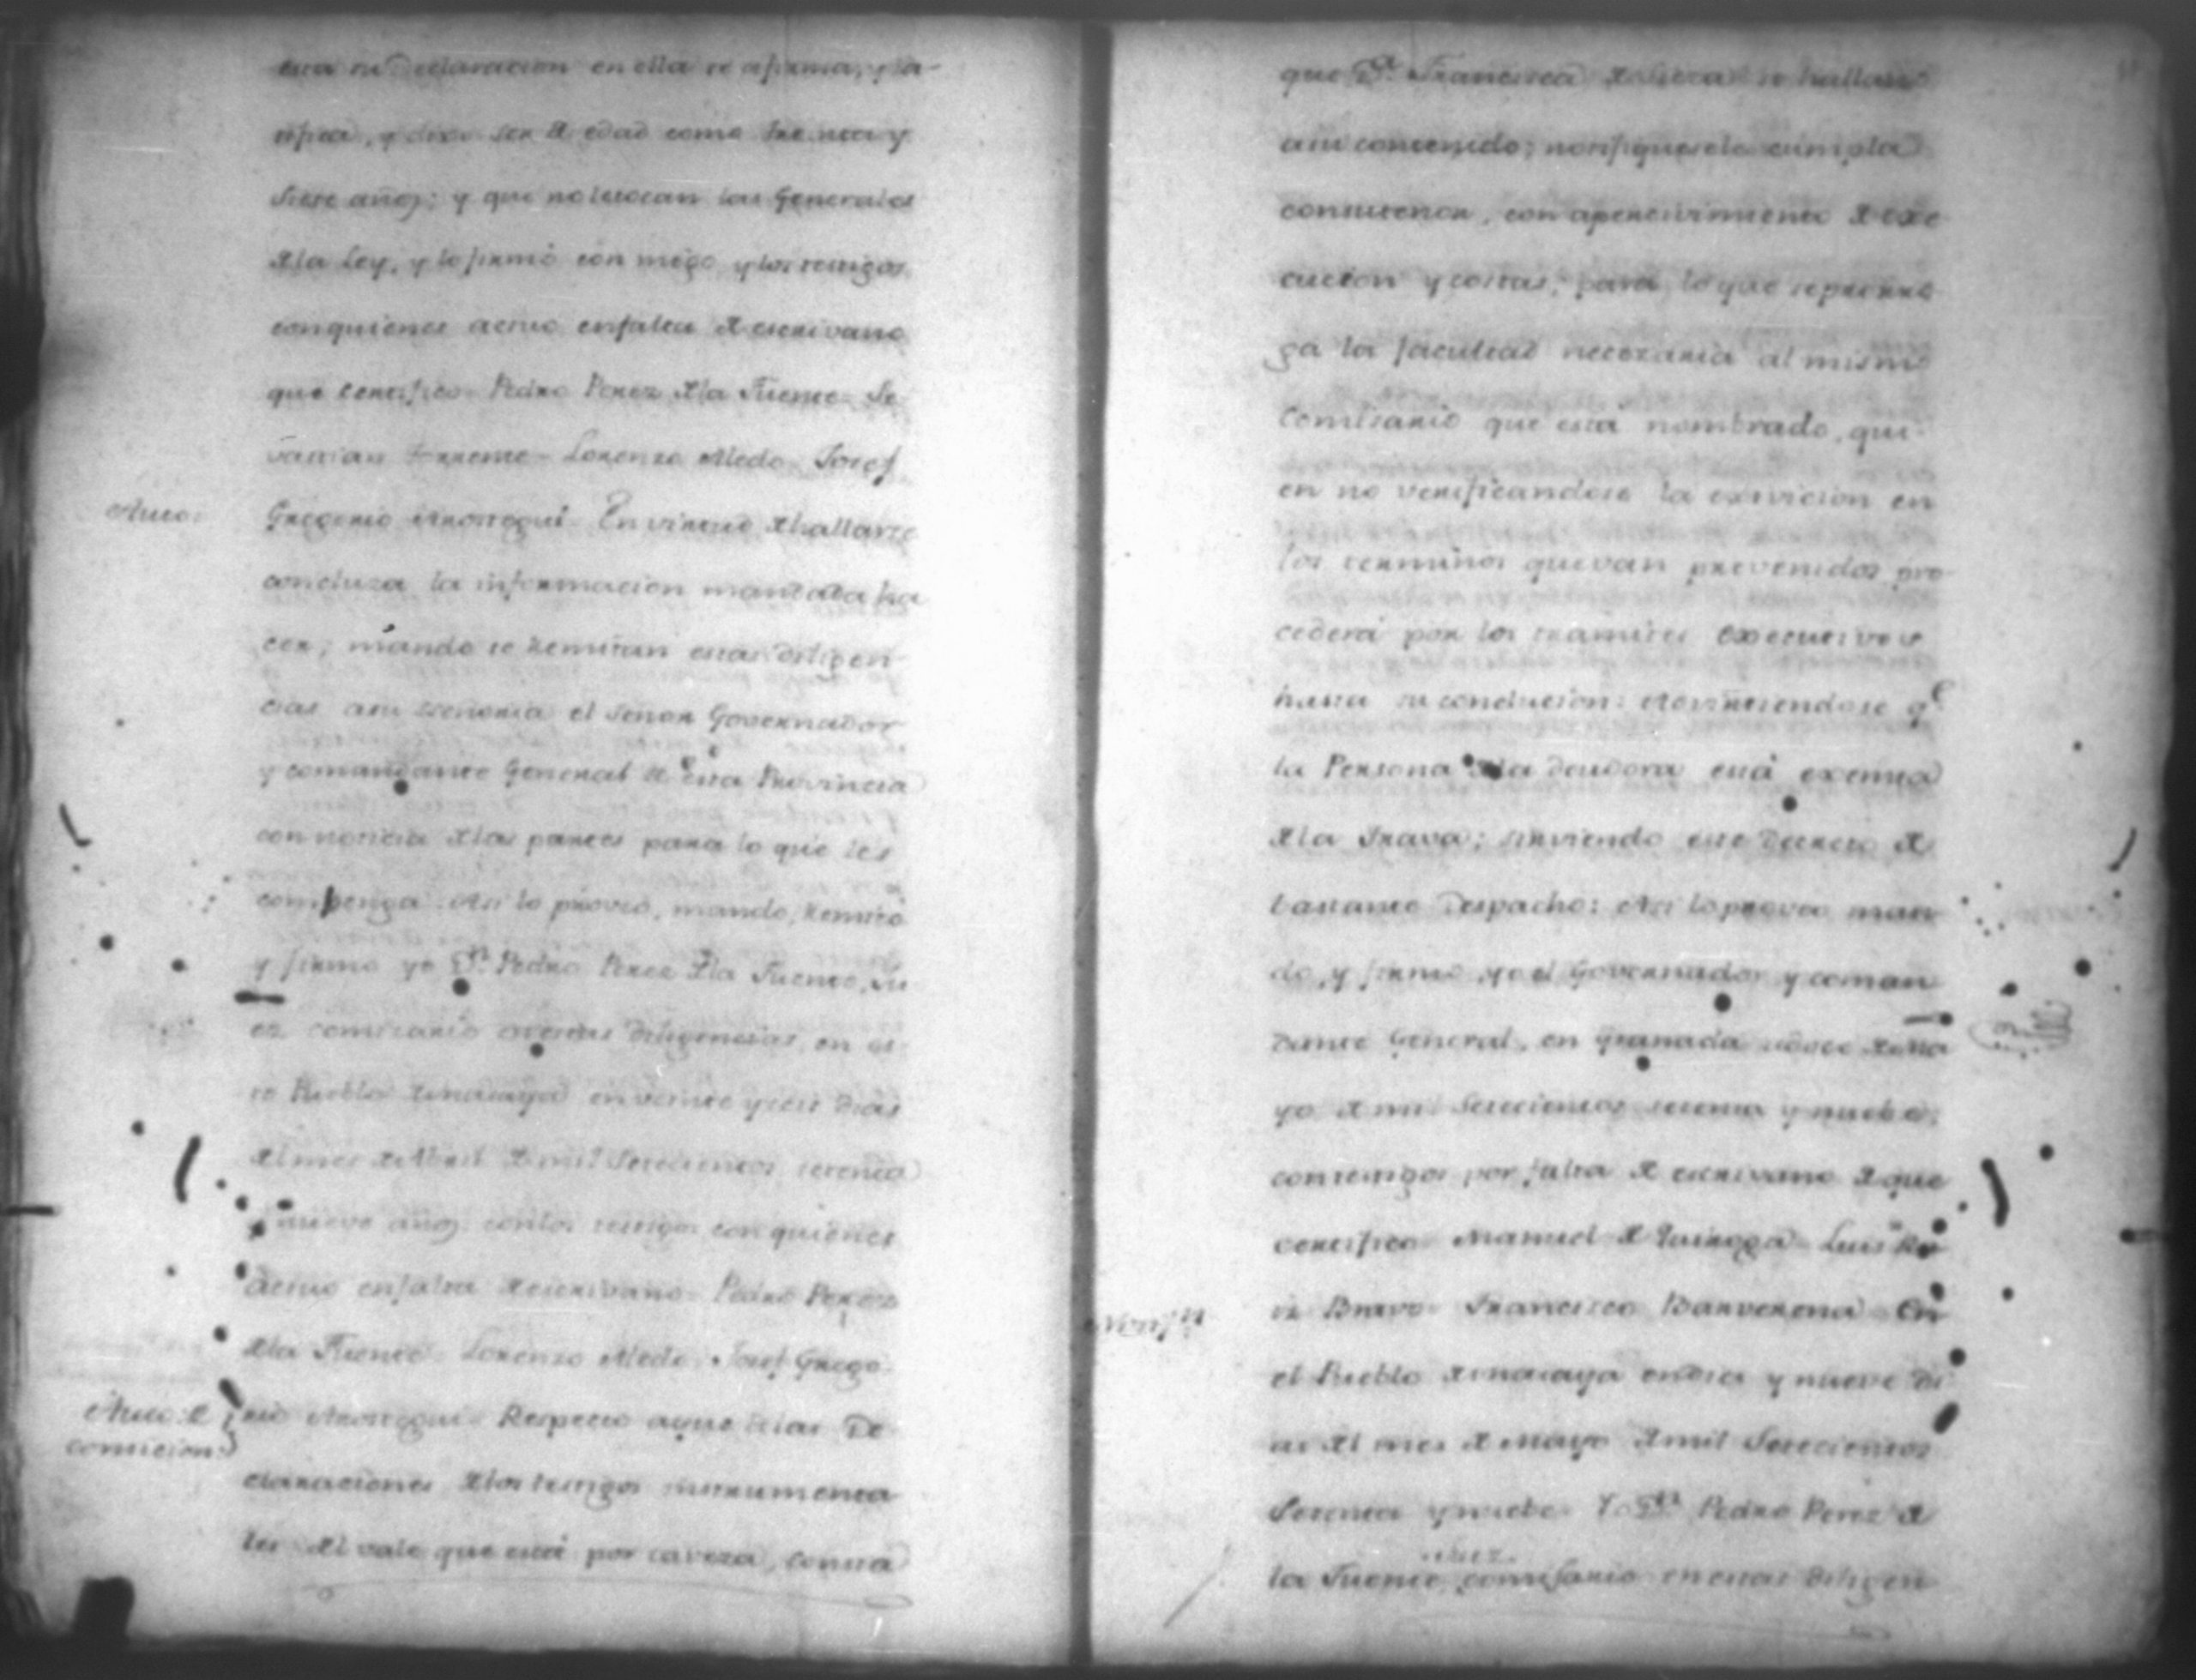 esta su Declaracion en ella se afirma, y ra-
tifica, y dixo ser de edad como treinta y
siete años; y que no le tocan las Generales
de la Ley, y lo firmó con migo y los testigos
con quienes actuo en falta de escrivano
que certifico Pedro Perez de la Fuente Se-
vastian Lorenzo Aledo Josef
Auto:
Gregorio Anostegui En virtud de hallarse
concluza la informacion mandada ha
cer; mando se remitan estas diligen-
cias a su señoria el señor Governador
y comandante General de esta Provincia
con noticia de las partes para lo que les
compenga. Asi lo proveo, mando, remito
y firmo yo Dn. Pedro Perez de la Fuente, Ju
ez comisario en estas diligencias, en es-
te Pueblo de masaya en veinte y seis dias
del mes de Abril de mil setecientos setenta
y nueve años: con los testigos con quienes
actuo en falta de escrivano. Pedro Perez
de la Fuente Lorenzo Aledo Josef Grego
Auto de comicion
rio Anostegui Respecto a que de las De-
claraciones de los testigos instrumenta-
les del vale que está por caveza, consta
que Da. Francisca se hallan
a su contenido; notifiquesele cumpla
con su tenor, con apercivimiento de exe
cucion y costas; para lo que se prorro
ga la facultad necesaria al mismo
Comisario que está nombrado, qui-
en no verificandose la exivicion en
los terminos que van prevenidos pro-
cederá por los tramites executivos
hasta su conclucion: Advirtiendose qe
la Persona de la deudora está exempta
de la Trava; sirviendo este Decreto de
bastante Despacho: Asi lo proveo man-
do, y firmo, yo el Governador y coman
dante General, en Granada a doce de Ma
yo de mil setecientos setenta y nuebe;
con testigos por falta de escrivano de que
certifico Manuel de Quiroga Luis Ru
iz Bravo Francisco Barverena En
el Pueblo de masaya en diez y nueve di
as del mes de Mayo de mil Setecientos
Setenta y nuebe Yo Dn. Pedro Perez de
la Fuente, juez comisario en estas diligen